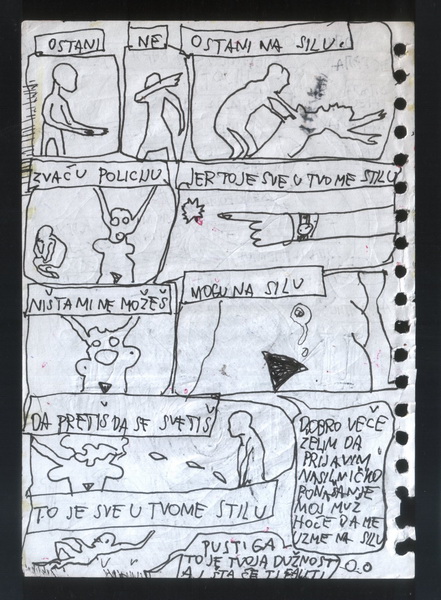 OSTANI
NE
OSTANI NA SILU.
ZVAĆU POLICIJU
JER TO JE SVE U TVOME STILU
NIŠTA MI NE MOŽEŠ
MOGU NA SILU
DA PRETIŠ DA SE SVETIŠ
DOBRO VEČE
ŽELIM DA
PRIJAVIM
NASILNIČKO
PONAŠANJE
MOJ MUŽ
HOĆE DA ME
UZME NA SILU
TO JE SVE U TVOME STILU
PUSTI GA
TO JE TVOJA DUŽNOST
A I ŠTA ĆE TI